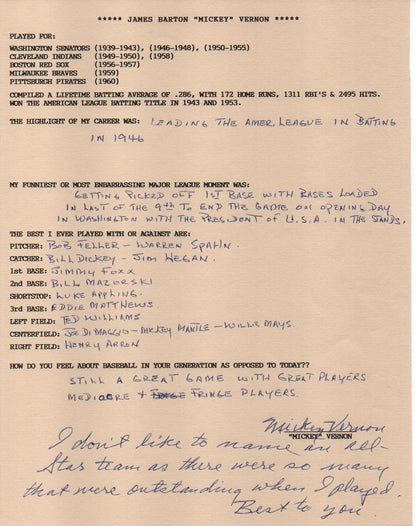 ***** JAMES BARTON "MICKEY" VERNON *****
PLAYED FOR:
WASHINGTON SENATORS (1939-1943), (1946-1948), (1950-1955)
CLEVELAND INDIANS (1949-1950), (1958)
BOSTON RED SOX (1956-1957)
MILWAUKEE BRAVES (1959)
PITTSBURGH PIRATES (1960)
COMPILED A LIFETIME BATTING AVERAGE OF .286, WITH 172 HOME RUNS, 1311 RBI'S & 2495 HITS.
WON THE AMERICAN LEAGUE BATTING TITLE IN 1943 AND 1953.
THE HIGHLIGHT OF MY CAREER WAS: LEADING THE AMER. LEAGUE IN BATTING
IN 1946
MY FUNNIEST OR MOST ENBARRASSING MAJOR LEAGUE MOMENT WAS:
GETTING PICKED OFF 1ST BASE WITH BASES LOADED
IN LAST OF THE 9TH TO END THE GAME ON OPENING DAY
IN WASHINGTON WITH THE PRESIDENT OF U.S.A. IN THE STANDS.
THE BEST I EVER PLAYED WITH OR AGAINST ARE:
PITCHER: BOB FELLER - WARREN SPAHN.
CATCHER: BILL DICKEY - JIM HEGAN.
1st BASE: JIMMY FOXX
2nd BASE: BILL MAZORSKI
SHORTSTOP: LUKE APPLING.
3rd BASE: EDDIE MATTHEWS
LEFT FIELD: TED WILLIAMS
CENTERFIELD: JOE DIMAGGIO - MICKEY MANTLE - WILLIE MAYS.
RIGHT FIELD: HENRY ARRON
HOW DO YOU FEEL ABOUT BASEBALL IN YOUR GENERATION AS OPPOSED TO TODAY??
STILL A GREAT GAME WITH GREAT PLAYERS
MEDIOCRE + FRINGE PLAYERS.
Mickey Vernon
"MICKEY" VERNON
I don't like to name an all-
Star team as there were so many
that were outstanding when I played.
Best to you.